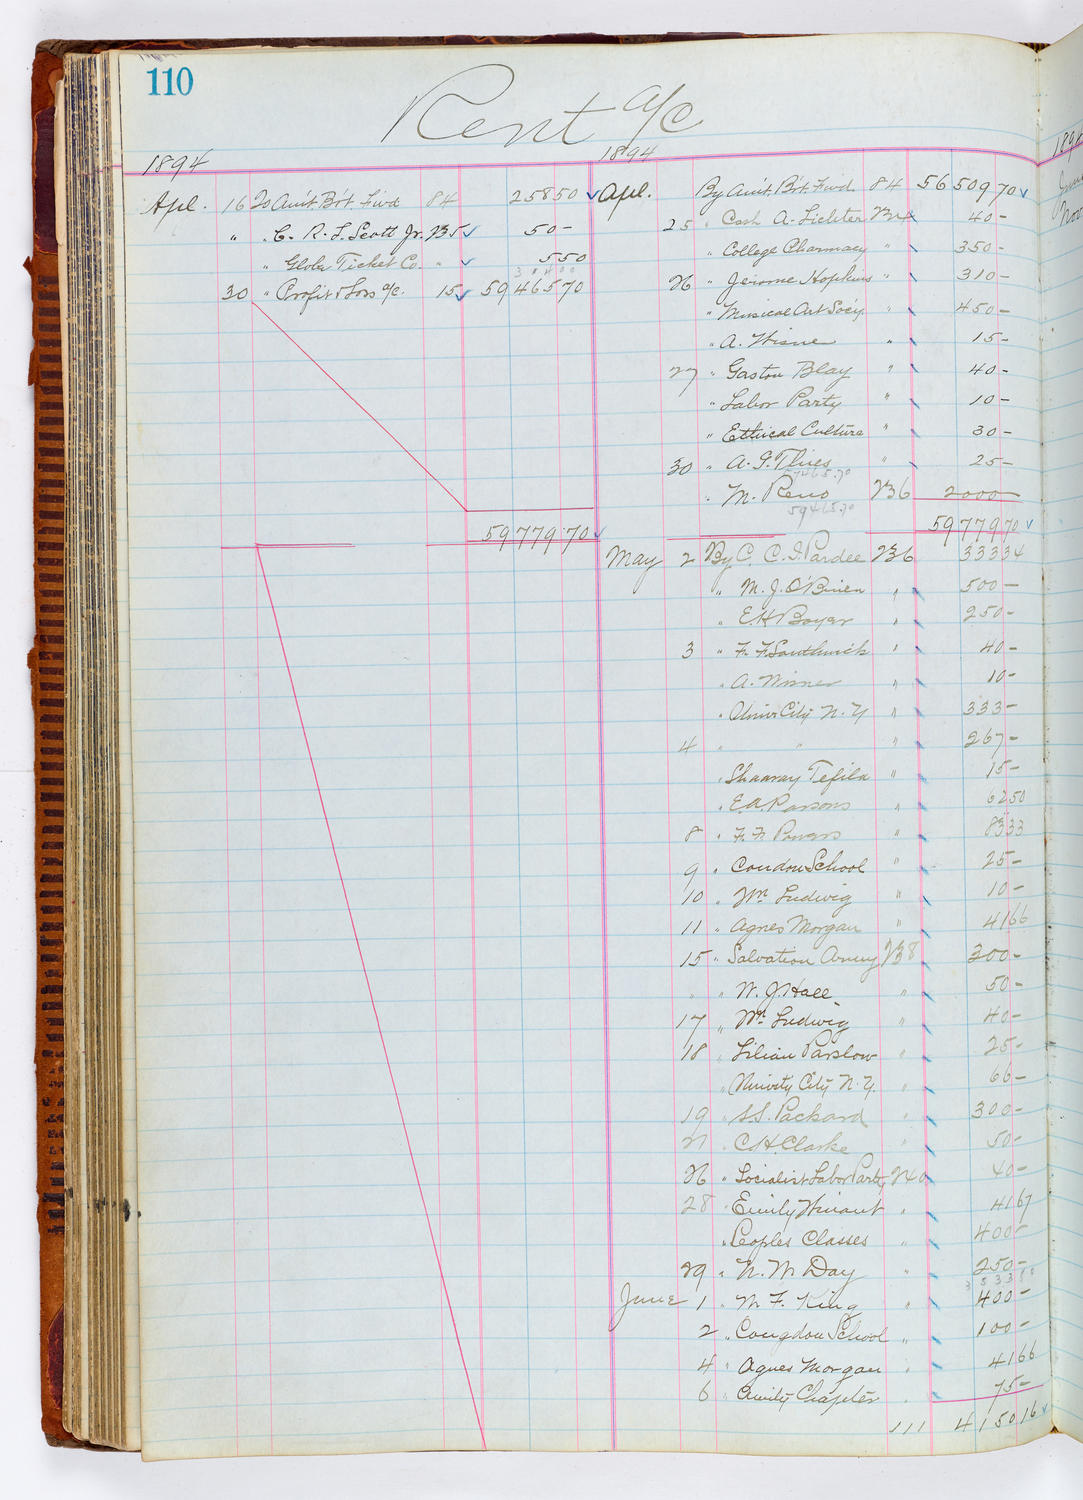 110
Rent a/c
1894
Apl. 16 To Am't. B't. Fwd 84 258 50
" " C. R. L. Scott Jr. 235 50 -
" Globe Ticket Co. " 5 50
30 " Profit & Loss a/c. 15 59 465 70
59 779 70
1894
Apl. By Am't. B't. Fwd. 84 56 509 70
25 " Cash A. Lichter 234 40 -
" College Pharmacy " 350 -
26 " Jerome Hopkins " 310 -
" Musical Art Soc'y " 450 -
" A. Wisne " 15 -
27 " Gaston Blay " 40 -
" Labor Party " 10 -
" Ethical Culture " 30 -
30 " A. G. Thies " 25 -
57465.70
" M. Reno 236 2000 -
59465.70
59 779 70
May 2 By C. C. I. Pardee 236 333 34
" M. J. O'Brien " 500 -
" E H Boyer " 250 -
3 " F. F. Southwick " 40 -
" A. Wisner " 10 -
" Univ City N. Y " 333 -
4 " " " 267 -
Shaaray Tefila " 15 -
" E. A. Parsons " 62 50
8 " F. F. Powers " 83 33
9 " Condon School " 25 -
10 " Wm Ludwig " 10 -
11 " Agnes Morgan " 41 66
15 " Salvation Army 238 300 -
" " W. J. Hall " 50 -
17 " Wm. Ludwig " 40 -
18 " Lilian Parslow " 25 -
" City N. Y. " 66 -
19 " S. S. Packard " 300 -
21 " C. H. Clarke " 50 -
26 " Socialist Labor Party 240 40 -
28 " Emily Winant " 41 67
" Peoples Classes " 400 -
29 " N. M Day " 250 -
June 1 " M. F. King " 400 -
2 " Congdon School " 100 -
4 " Agnes Morgan " 41 66
6 " Amity Chapter " 75 -
111 4150 16